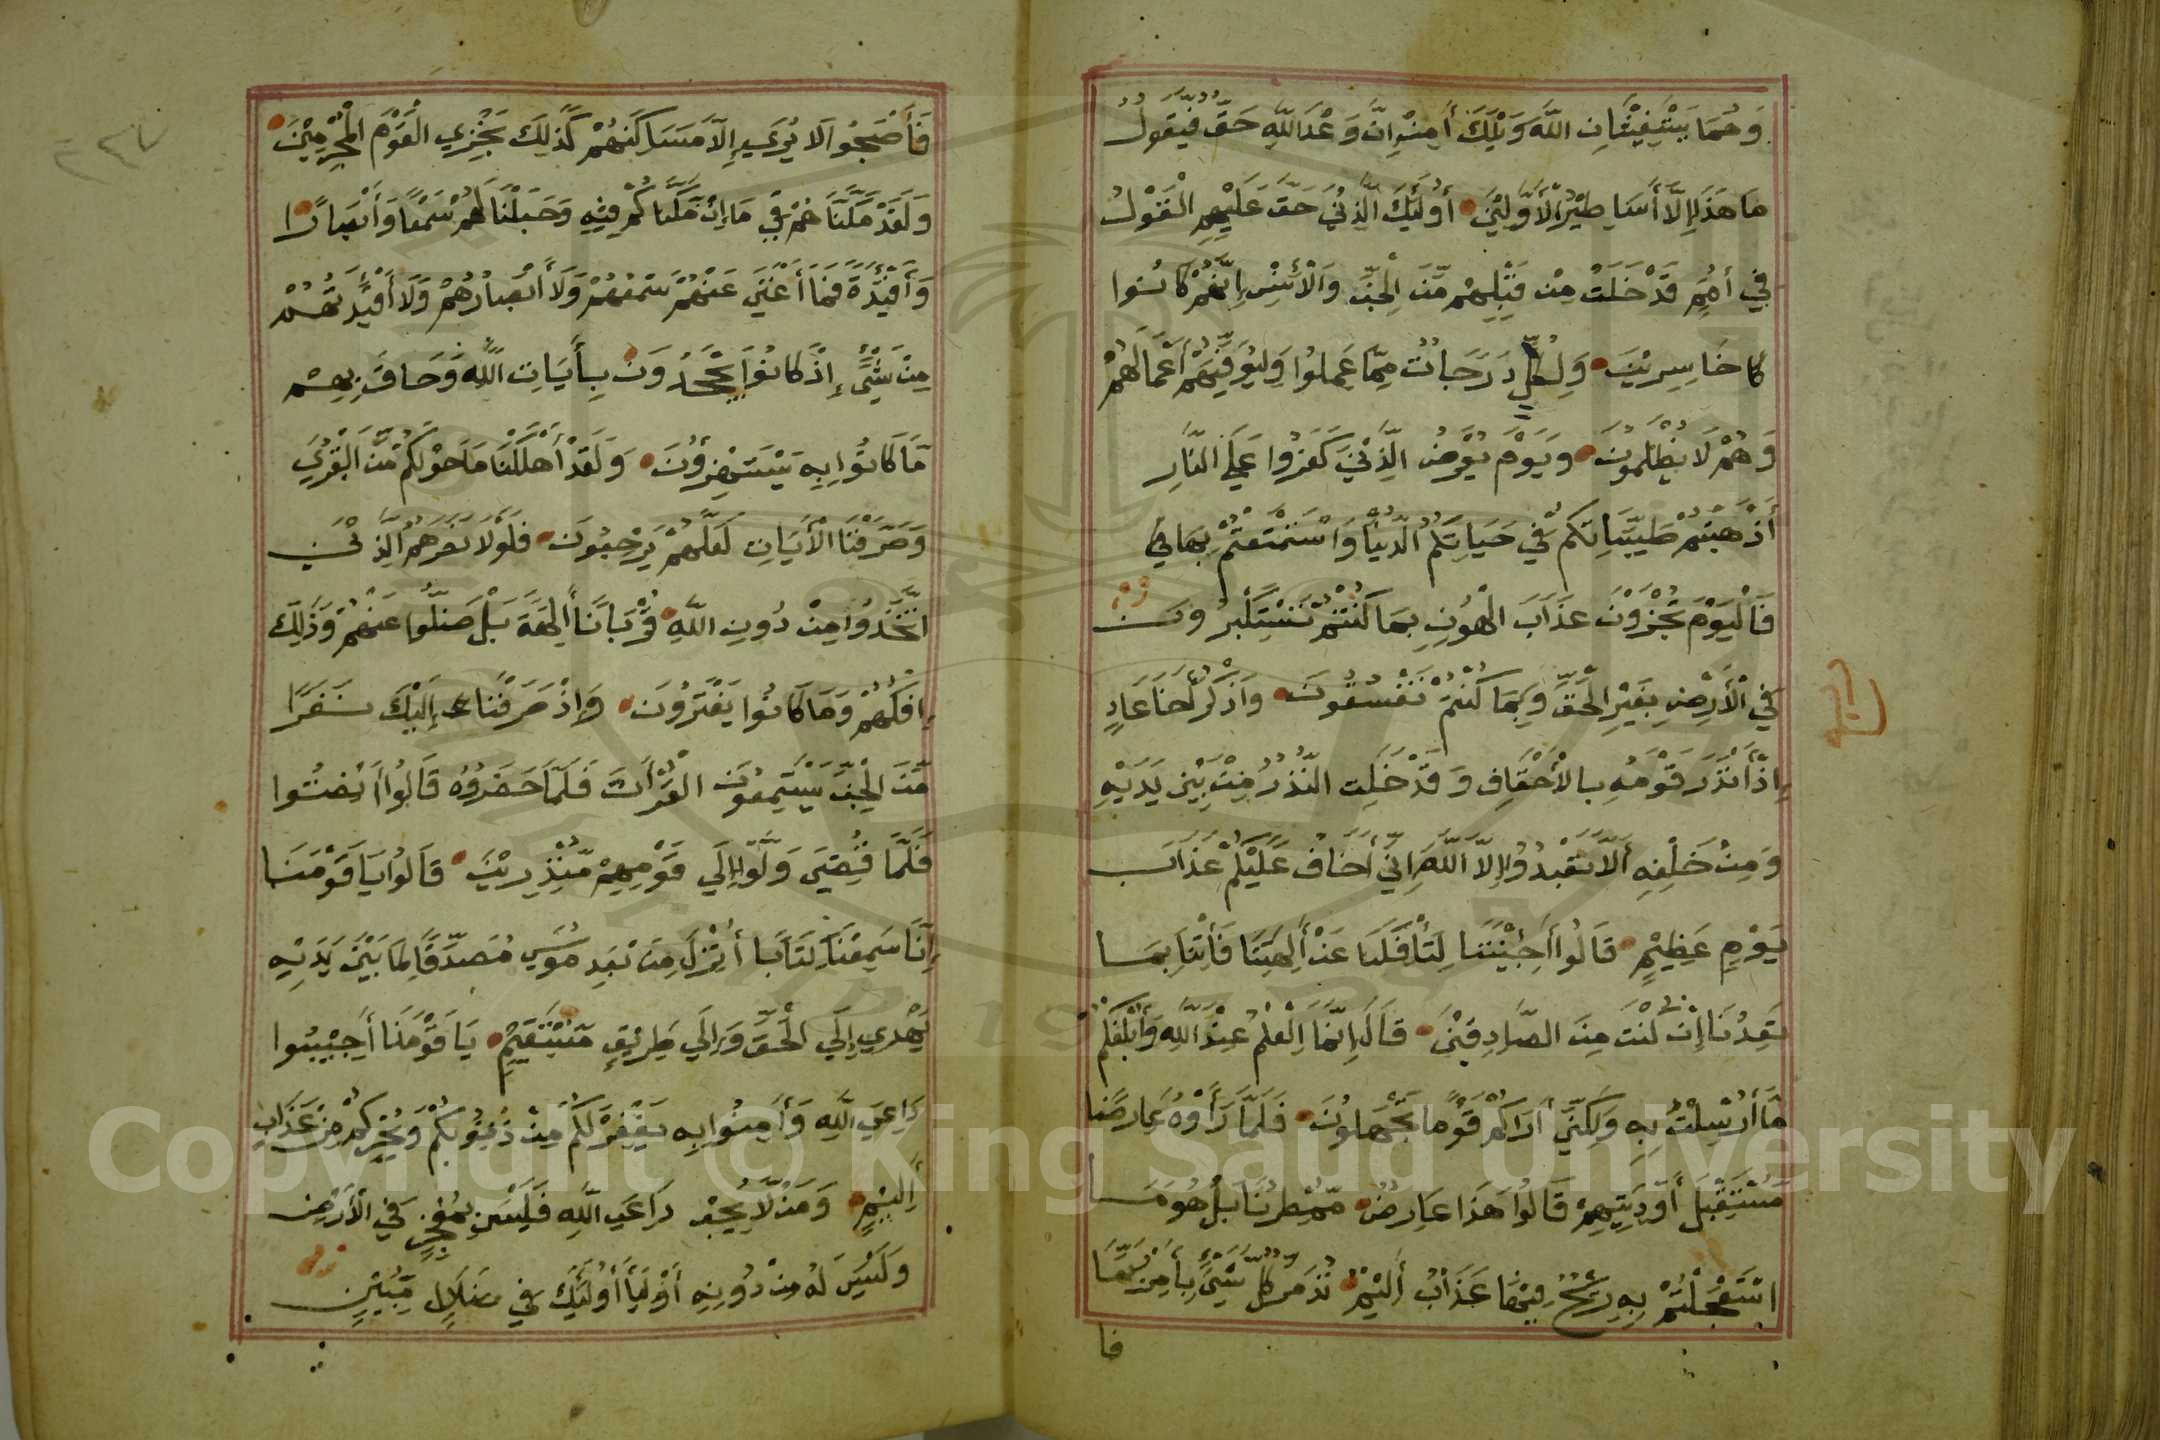 وَهُمَا يَسْتَغِيثَانِ اللَّهَ وَيْلَكَ أَمِنْ إِنَّ وَعْدَ اللَّهِ حَقٌّ فَيَقُولُ
مَا هَذَا إِلَّا أَسَاطِيْرُ الْأَوَّلِيْنَ أُولَئِكَ الَّذِيْنَ حَقَّ عَلَيْهِمُ الْقَوْلُ
فِي أُمَمٍ قَدْ خَلَتْ مِنْ قَبْلِهِمْ مِّنَ الْجِنِّ وَالْأِنْسِ إِنَّهُمْ كَانُوا
كَا خَاسِرِيْنَ وَلِكُلٍّ دَرَجَاتٌ مِمَّا عَمِلُوا وَلِيُوَفِّيَهُمْ أَعْمَالَهُمْ
وَهُمْ لَا يُظْلَمُونَ وَيَوْمَ يُعْرَضُ الَّذِيْنَ كَفَرُوا عَلَي النَّارِ
أَذْهَبْتُمْ طَيِّبَاتِكُمْ فِي حَيَاتِكُمُ الدُّنْيَا وَاسْتَمْتَعْتُمْ بِهَا
فَالْيَوْمَ تُجْزَوْنَ عَذَابَ الْهُونِ بِمَا كُنْتُمْ تَسْتَكْبِرُونَ
فِي الْأَرْضِ بِغَيْرِ الْحَقِّ وَبِمَا كُنْتُمْ تَفْسُقُونَ وَاذْكُرْ أَخَا عَادٍ
إِذْ أَنْذَرَ قَوْمَهُ بِالْأَحْقَافِ وَقَدْ خَلَتِ النُّذُرُ مِنْ بَيْنِ يَدَيْهِ
وَمِنْ خَلْفِهِ أَلَّا تَعْبُدُوا إِلَّا اللَّهَ إِنِّي أَخَافُ عَلَيْكُمْ عَذَابَ
يَوْمٍ عَظِيْمٍ قَالُوا أَجِئْتَنَا لِتَأْفِكَنَا عَنْ أَلِهَتِنَا فَأْتِنَا بِمَا
تَعِدُنَا إِنْ كُنْتَ مِنَ الصَّادِقِيْنَ قَالَ إِنَّمَا الْعِلْمُ عِنْدَ اللَّهِ وَأُبَلِّغُكُمْ
مَّا أُرْسِلْتُ بِهِ وَلَكِنِّي أَرَاكُمْ قَوْمًا تَجْهَلُونَ فَلَمَّا رَأَوْهُ عَارِضًا
مُسْتَقْبِلَ أَوْدِيَتِهِمْ قَالُوا هَذَا عَارِضٌ مُّمْطِرُنَا بَلْ هُوَ مَا
اسْتَعْجَلْتُمْ بِهِ رِيْحٌ فِيْهَا عَذَابٌ أَلِيْمٌ تُدَمِّرُ كُلَّ شَيْءٍ بِأَمْرِ رَبِّهَا
فا
فَأَصْبَحُوا لَا يُرَي إِلَّا مَسَاكِنُهُمْ كَذَلِكَ نَجْزِي الْقَوْمَ الْمُجْرِمِيْنَ
وَلَقَدْ مَكَّنَّاهُمْ فِي مَا إِنْ مَّكَّنَّاكُمْ فِيْهِ وَجَعَلْنَا لَهُمْ سَمْعًا وَأَبْصَارًا
وَأَفْئِدَةً فَمَا أَغْنَي عَنْهُمْ سَمْعُهُمْ وَلَا أَبْصَارُهُمْ وَلَا أَفْئِدَتُهُمْ
مِنْ شَيْءٍ إِذْ كَانُوا يَجْحَدُونَ بِأَيَاتِ اللَّهِ وَحَاقَ بِهِمْ
مَّا كَانُوا بِهِ يَسْتَهْزِؤُنَ وَلَقَدْ أَهْلَكْنَا مَا حَوْلَكُمْ مِّنَ الْقُرَي
وَصَرَّفْنَا الْأَيَاتِ لَعَلَّهُمْ يَرْجِعُونَ فَلَوْلَا نَصَرَهُمُ الَّذِيْنَ
اتَّخَذُوا مِنْ دُونِ اللَّهِ قُرْبَانًا أَلِهَةً بَلْ ضَلُّوا عَنْهُمْ وَذَلِكَ
إِفْكُهُمْ وَمَا كَانُوا يَفْتَرُونَ وَإِذْ صَرَفْنَا إِلَيْكَ نَفَرًا
مِّنَ الْجِنِّ يَسْتَمِعُونَ الْقُرْأَنَ فَلَمَّا حَضَرُوهُ قَالُوا أَنْصِتُوا
فَلَمَّا قُضِيَ وَلَّوْا إِلَي قَوْمِهِمْ مُّنْذِرِيْنَ قَالُوا يَا قَوْمَنَا
إِنَّا سَمِعْنَا كِتَابًا أُنْزِلَ مِنْ بَعْدِ مُوسَي مُصَدِّقًا لِّمَا بَيْنَ يَدَيْهِ
يَهْدِي إِلَي الْحَقِّ وَإِلَي طَرِيْقٍ مُّسْتَقِيْمٍ يَا قَوْمَنَا أَجِيْبُوا
دَاعِيَ اللَّهِ وَأَمِنُوا بِهِ يَغْفِرْ لَكُمْ مِّنْ ذُنُوبِكُمْ وَيُجِرْكُمْ مِّنْ عَذَابٍ
أَلِيْمٍ وَمَنْ لَّا يُجِبْ دَاعِيَ اللَّهِ فَلَيْسَ بِمُعْجِزٍ فِي الْأَرْضِ
وَلَيْسَ لَهُ مِنْ دُونِهِ أَوْلِيَاءُ أُولَئِكَ فِي ضَلَالٍ مُّبِيْنٍ
Copyright © King Saud University